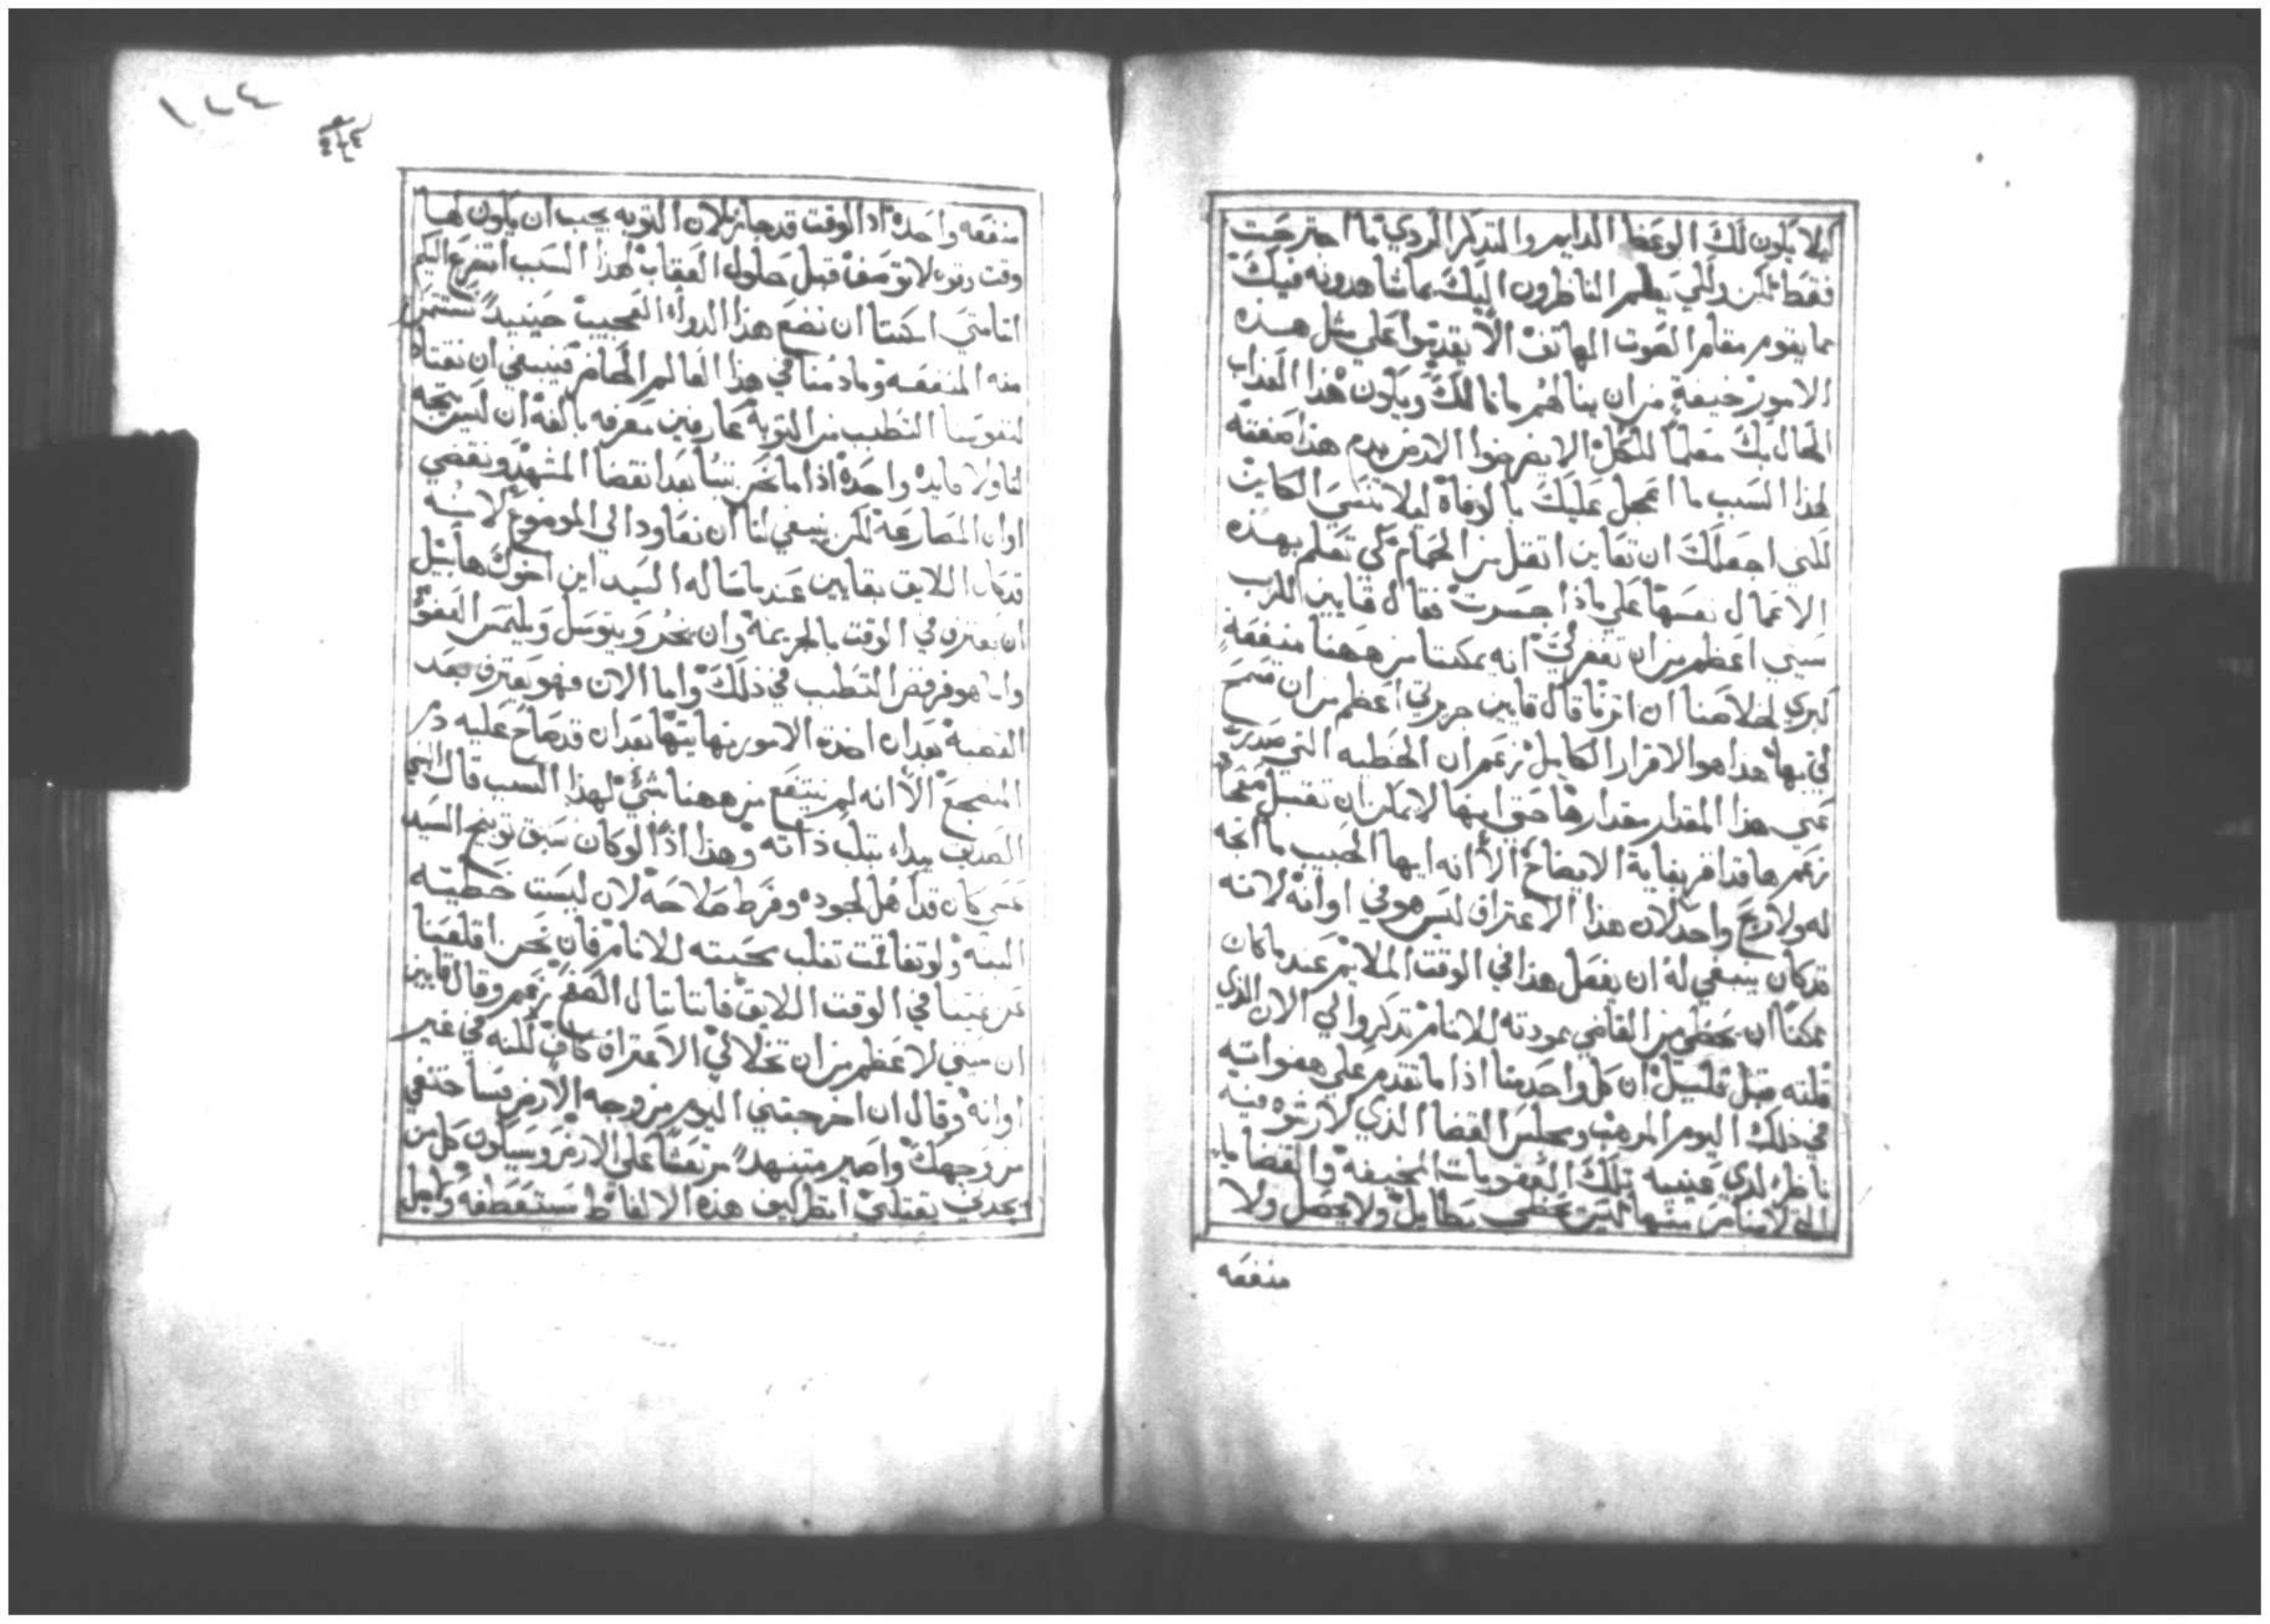 كيلا يكون لك الوعظ الدايم والتذكر الردي ما اجترحت
فقط لكن ولكي يعلم الناظرون اليك بما شاهدونه فيك
مما يقوم مقام الصوت الهاتف الا يقدموا على مثل هذه
الامور خيفة من ان ينالهم ما نالك ويكون هذا العذاب
الحال بك معلما للكل الا يفرضوا الارض بدم هذا صفته
لهذا السبب ما اعجل عليك بالوفاة ليلا تنسى الكاين
لكني اجعلك ان تقاين اثقل من الحمام كي تعلم بهذه
الاعمال نفسها على ماذا جسرت فقال قايين للرب
سيتي اعظم من ان تغفر لي انه يمكننا من ههنا منفعة
كبري لخلاصنا ان اثرنا قال قايين جريرتي اعظم من ان تسمح
لي بها هذا هو الاقرار الكامل زعم ان الخطيه التي صدرت
عني هذا المقدار مقدارها حتى انها لا يمكن ان تغسل
زعم ها قد اقر بغاية الايضاح الا انه ايها الحبيب ما انجه
له ولا ربح واحد لان هذا الاعتراف ليس هو في اوانه لانه
قد كان ينبغي له ان يفعل هذا في الوقت الملايم عندما كان
ممكنا ان يحظى من القاضي بمودته للانام تذكروا لي الان الذي
قلته قبل قليل ان كل واحد منا اذا ما تقدم على هفواته
في ذلك اليوم المرهب ومجلس القضا الذي لا رشوة فيه
ناظرا لدي عينيه تلك العقوبات المخيفة والقضايا
التي لا مناص منها ليس يحظى بطايل ولا يحصل ولا
منفعه
١٤٤
منفعه واحدة اذ الوقت قد جاز لان التوبه يجب ان يكون لها
وقت وتوه لا توصف قبل حلول العقاب لهذا السبب اتضرع اليكم
اننا متى امكننا ان نضع هذا الدواء العجيب حينيدا نستثمر
منه المنفعه وما دمنا في هذا العالم الحاضر فينبغي ان نقتاد
لنفوسنا التطبب من التوبة عارفين معرفه بالغه ان ليس يتجه
لنا ولا فايدة واحدة اذا ما نحن تبنا بعد انقضا المشهد ونقضي
اوان المصارعة لكن ينبغي لنا ان نعاود الي الموضوع لانه
قد كان اللايق بقايين عندما ساله السيد اين اخوك هابيل
ان يعترف في الوقت بالجريمة وان يخر ويتوسل ويلتمس العفو
واما هو فرفض التطبب في ذلك واما الان فهو يعترف بعد
القضية بعد ان اخذت الامور نهايتها بعد ان قد صاح عليه دم
المنضجع الا انه لم ينتفع من ههنا شي لهذا السبب قال النبي
الصديق يبداء بثلب ذاته وهذا اذا لو كان سبق توبيخ السيد
عسى كان قد اهل لجوده وفرط صلاحه لان ليست خطيه
البته ولو تفاقمت تغلب محبته للانام فان نحن اقلعنا
عن غينا في الوقت اللايق فاننا ننال الصفح زعم وقال قايين
ان سيتي لاعظم من ان تخلا لي الاعتراف كاف لكنه في غير
اوانه وقال ان اخرجتني اليوم من وجه الارض فساختفي
من وجهك واصير متنهدا مرتعشا على الارض وسيكون كل من
يجدني يقتلني انظر كيف هذه الالفاظ مستعطفة ولكل